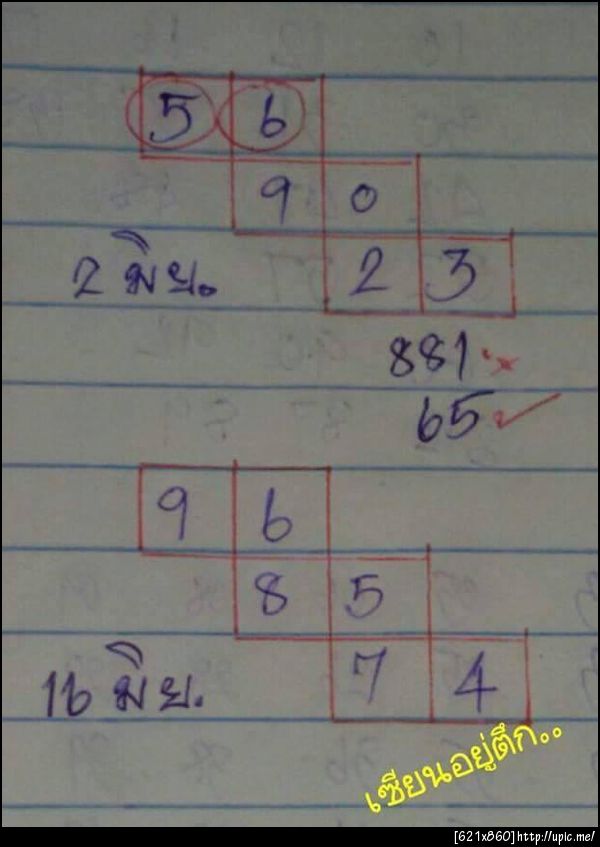 5 6
9 0
2 มิย. 2 3
881 ×
65 ✓
9 6
8 5
16 มิย. 7 4
เซียนอยู่ตึก..
[621x860]http://upic.me/